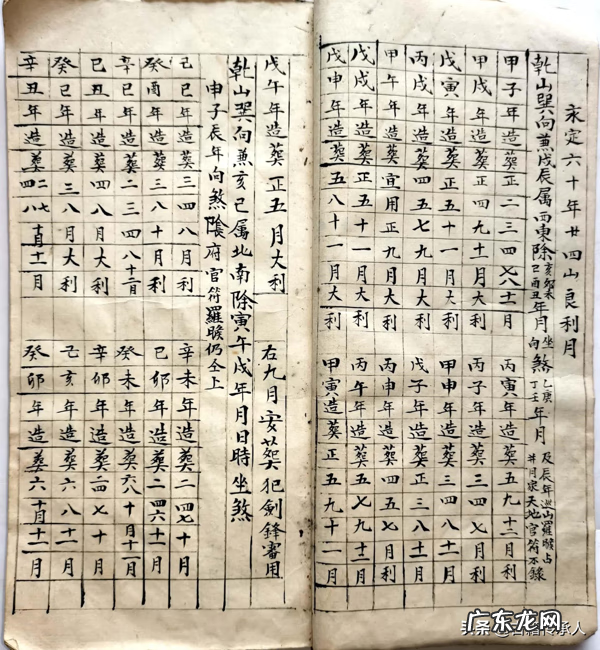 永定六十年廿四山良利月
乾山巽向兼戌辰属西東除亥卯未巳酉丑年月坐向煞乙庚丁壬年月及辰年巡山羅睺占並月家天地官符不錄
甲子年造葬正二三四七八十一月 丙寅年造葬五九十二月
甲戌年造葬正四九十一月利 丙子年造葬二三四七月
戊寅年造葬正四五十一月利 甲申年造葬三四八十二月
丙戌年造葬四五七九月大利 戊子年造葬正三八十二月
甲午年造葬宜用正九月利 丙申年造葬四五七月
戊戌年造葬正五十一月大利 丙午年造葬五七九十二月
戊申年造葬五八十一月大利 甲寅造葬正五九十二月
戊午年造葬正五月大利 右九月安葬犯劍鋒審用
乾山巽向兼亥巳属北南除寅午戌年月日時坐煞
申子辰年向煞陰府官符羅睺仍仝上
己巳年造葬三四八月大利 辛未年造葬二四七十月
癸酉年造葬三八十月利 己卯年造葬二四六十一月
辛巳年造葬二三四八十二月 癸未年造葬六八十月十二月
己丑年造葬四八月大利 辛卯年造葬二四七十月
癸巳年造葬三八月大利 己亥年造葬六八十二月
辛丑年造葬 十月十二月 癸卯年造葬六十月十二月
广东龙网